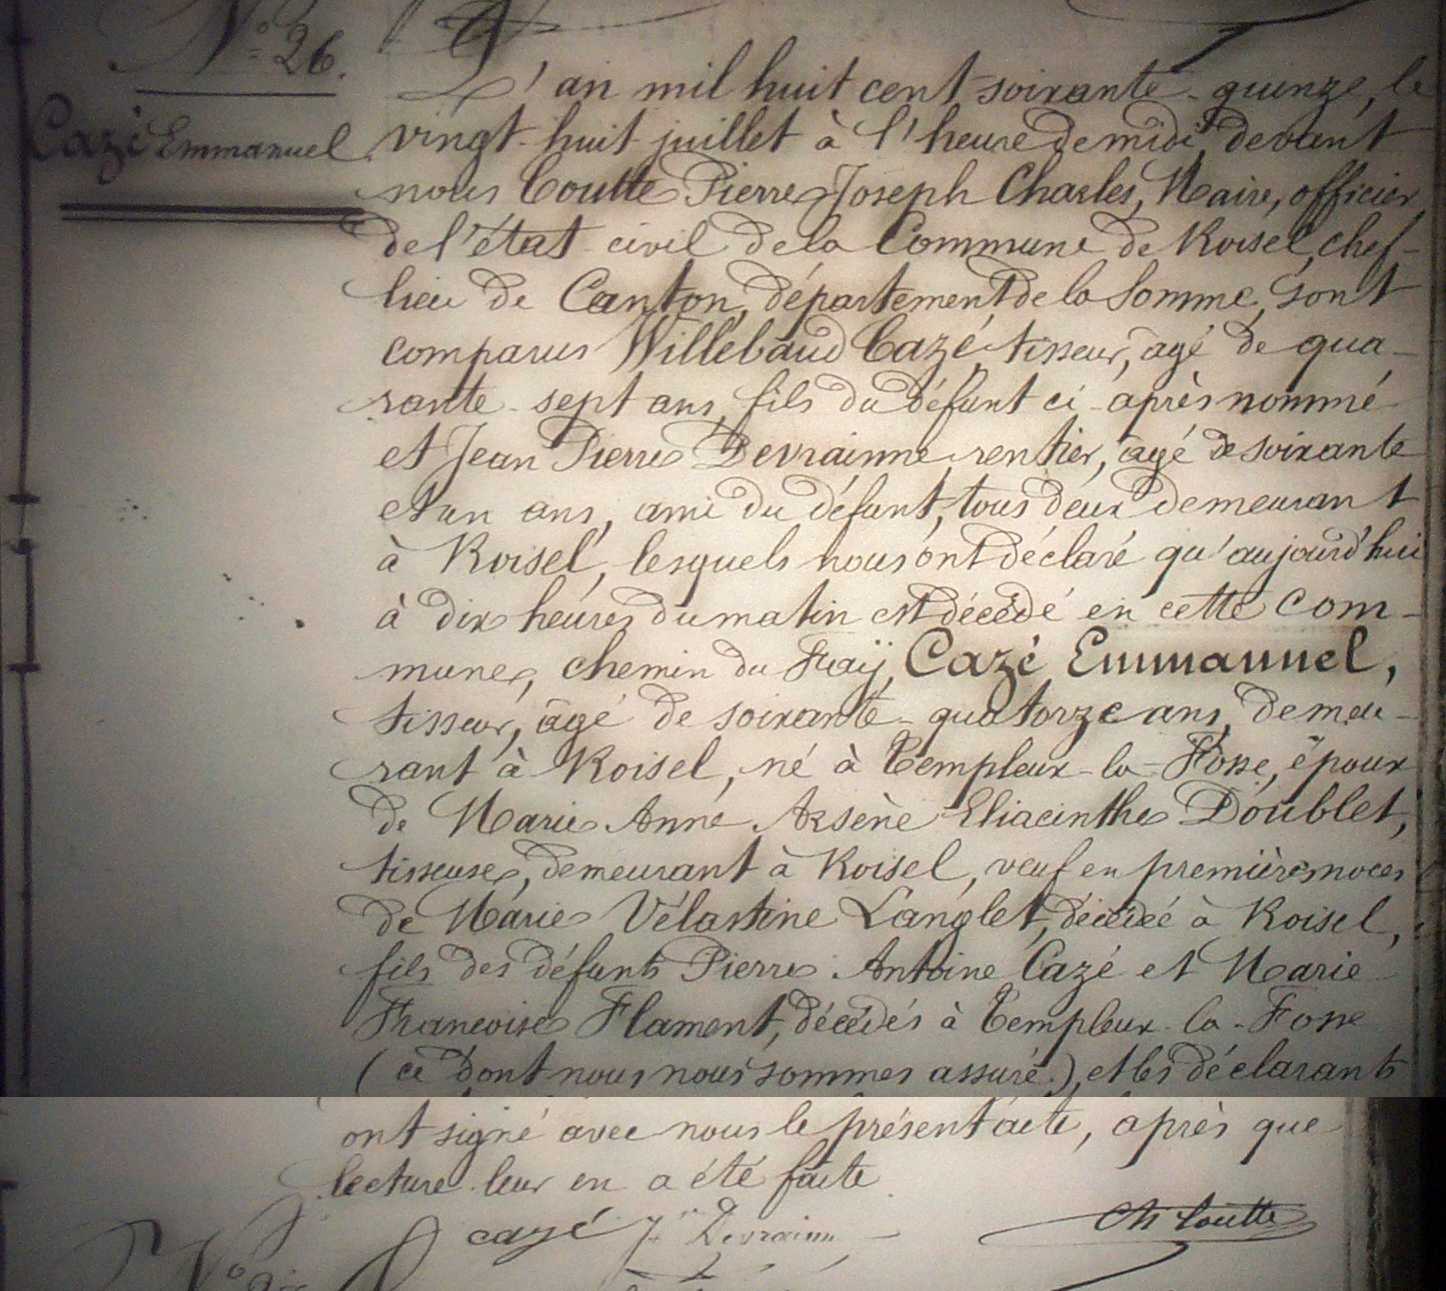 N° 26.
Cazé Emmanuel
L'an mil huit cent soixante-quinze, le
vingt-huit juillet à l'heure de midi devant
nous Coutte Pierre Joseph Charles, Maire, officier
de l'état civil de la Commune de Roisel, chef-
lieu de Canton, département de la Somme, sont
comparus Willebaud Cazé, tisseur, âgé de qua-
rante-sept ans, fils du défunt ci-après nommé
et Jean Pierre Devrainne, rentier, âgé de soixante
et un ans, ami du défunt, tous deux demeurant
à Roisel, lesquels nous ont déclaré qu'aujourd'hui
à dix heures du matin est décédé en cette com-
mune, chemin du Fraÿ, Cazé Emmanuel,
tisseur, âgé de soixante-quatorze ans, demeu-
rant à Roisel, né à Templeux-la-Fosse, époux
de Marie Anne Arsène Eliacinthe Doublet,
tisseuse, demeurant à Roisel, veuf en premières noces
de Marie Vélastine Langlet, décédée à Roisel,
fils des défunts Pierre Antoine Cazé et Marie
Françoise Flament, décédés à Templeux-la-Fosse
(ce dont nous nous sommes assuré.), et les déclarants
ont signé avec nous le présent acte, après que
lecture leur en a été faite
cazé J. Devrainne Ch Coutte
N°